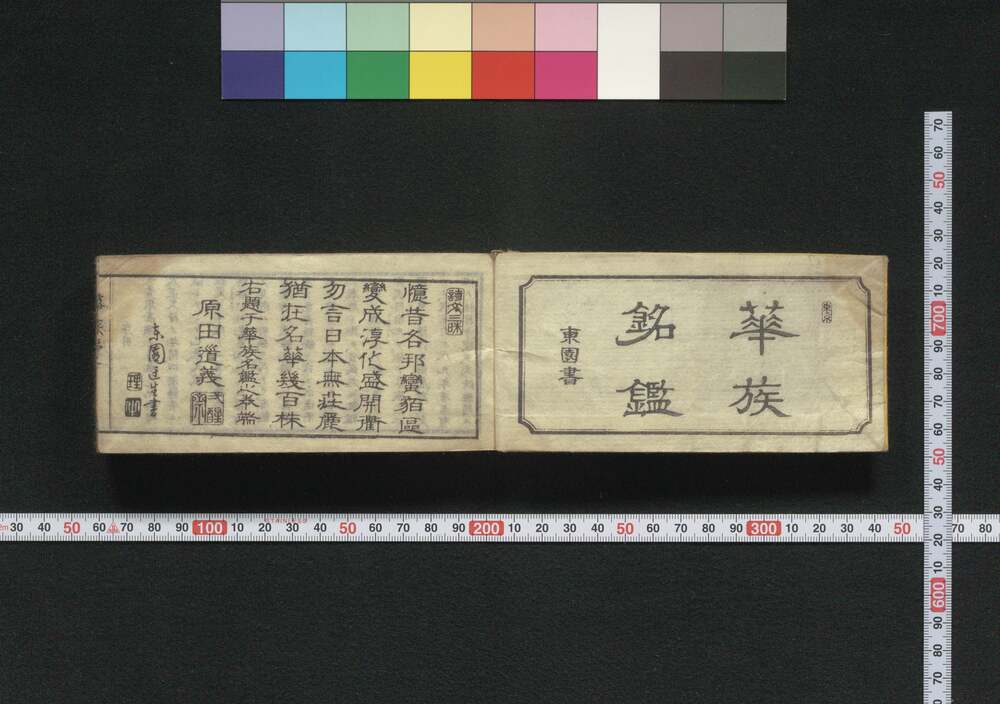 華族
銘鑑
東園書
憶昔各邦蠻貊區
變成淳化盛開衢
勿言日本無莊麗
猶在名華幾百株
右題于華族名鑑小本端
原田道義
東園逸生書
30 40 50 60 70 80 90 100 10 20 30 40 50 60 70 80 90 200 10 20 30 40 50 60 70 80 90 300 10 20 30 40 50 70 80
70 60 50 40 30 20 10 700 90 80 70 60 50 40 30 20 10 600 90 80 70